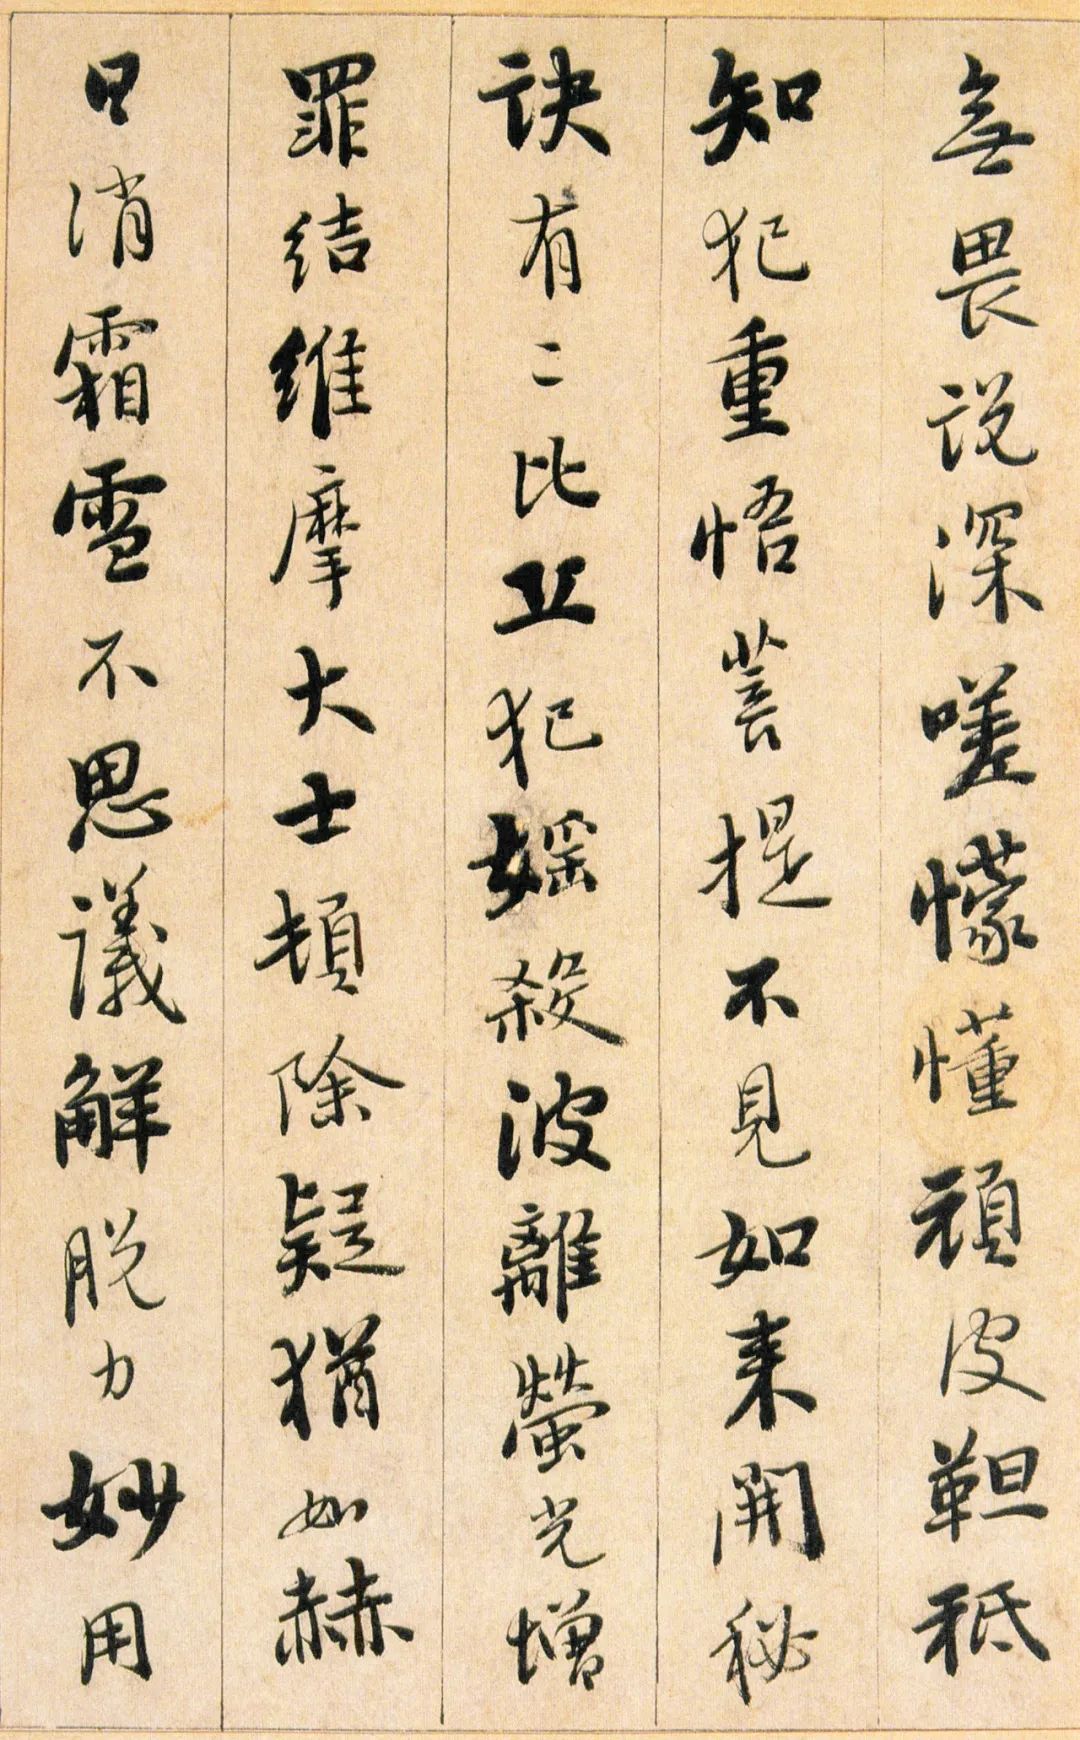 無畏説深嗟懞懂頑皮靼秪
知犯重悟菩提不見如来開秘
訣有二比丘犯婬殺波離螢光增
罪結維摩大士頓除疑猶如赫
日消霜雪不思議解脱力妙用